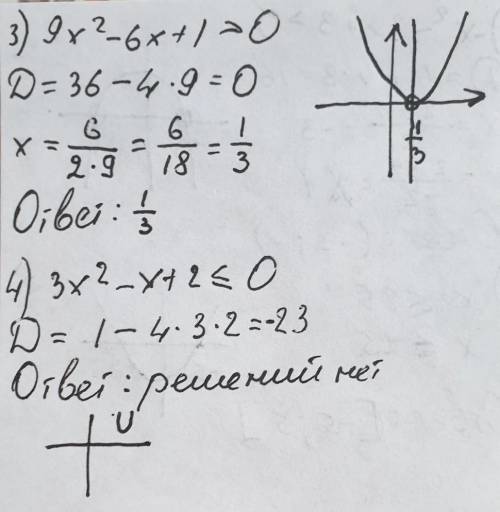 3) 9x² - 6x + 1 > 0
D = 36 - 4 · 9 = 0
x = 6/(2·9) = 6/18 = 1/3
Ответ: 1/3
1/3
4) 3x² - x + 2 ≤ 0
D = 1 - 4 · 3 · 2 = -23
Ответ: решений нет